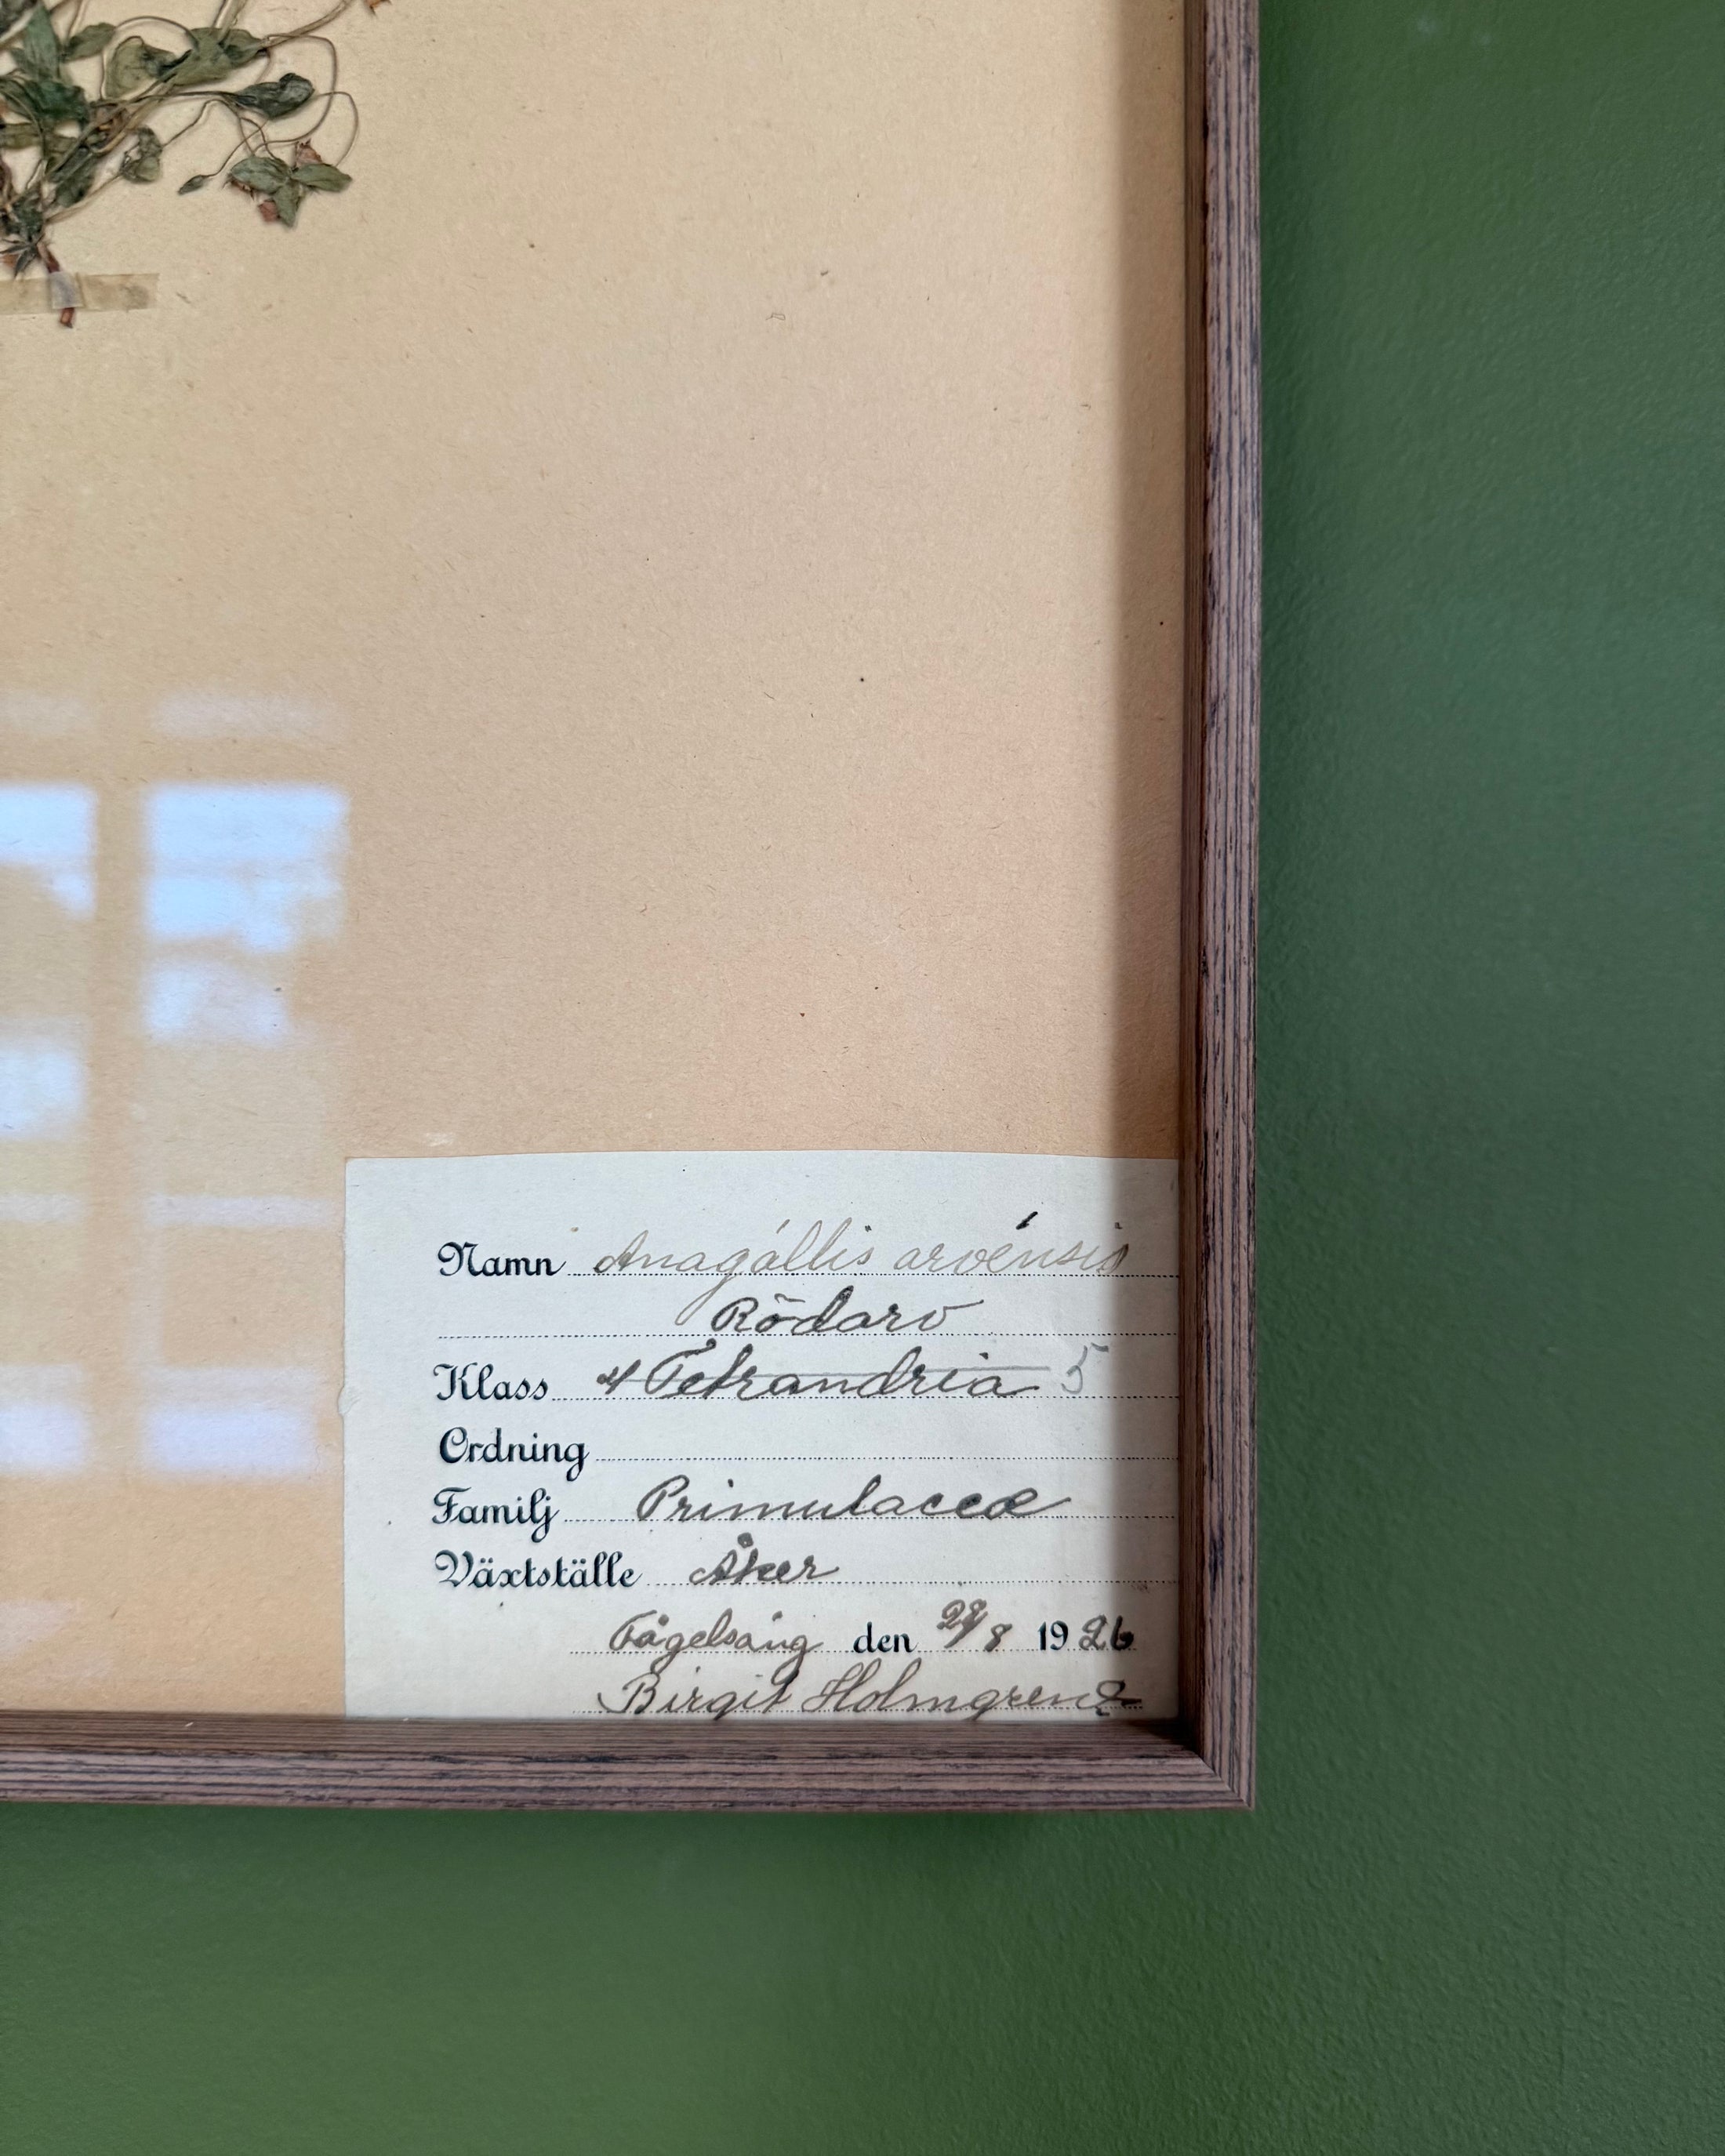 Namn Anagállis arvénsis
Rödarv
Klass 4 Tetrandria 5
Ordning
Familj Primulaceæ
Växtställe Åker
Fågelsång den 29/8 1926
Birgit Holmgren